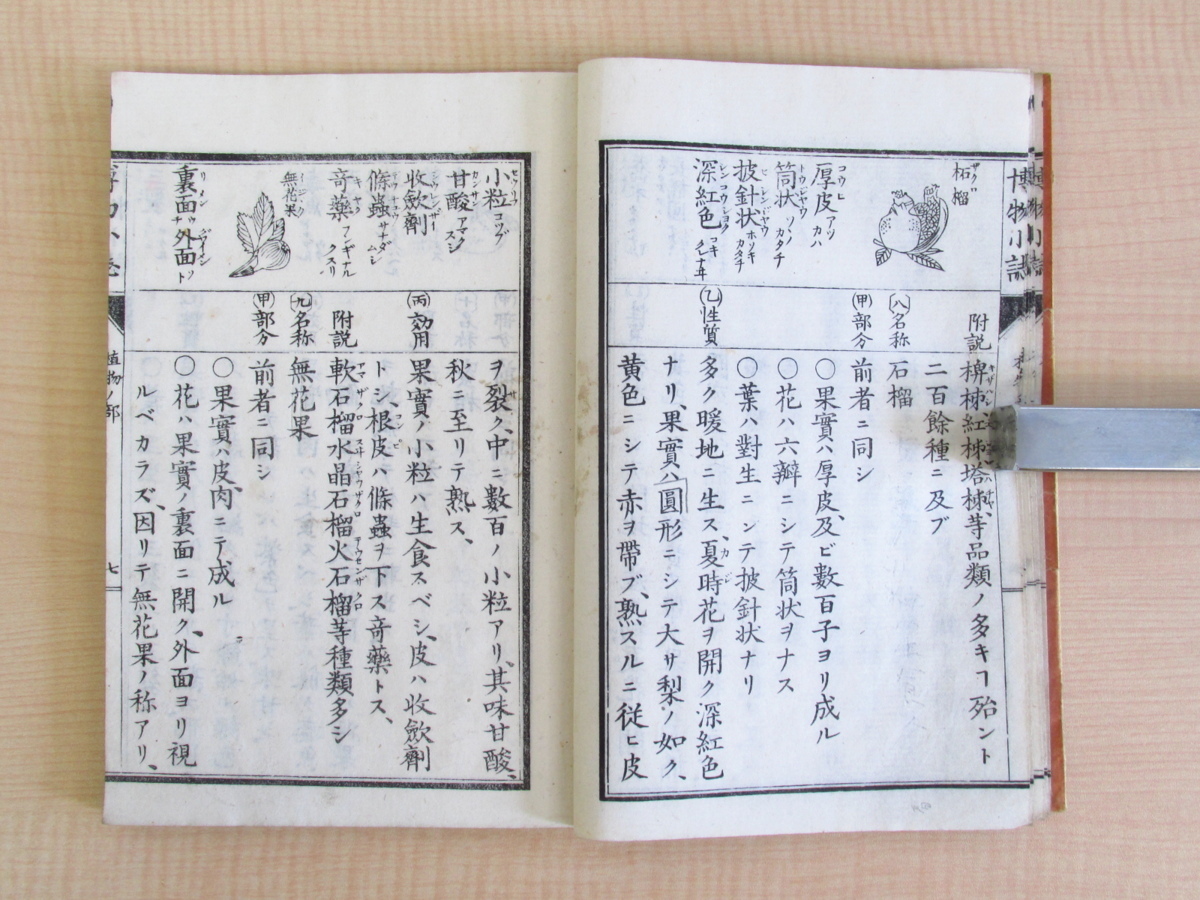 博物小誌
柘榴
ザクロ
厚皮 アツカハ
コウヒ
筒状 ツヽノカタチ
披針状 ホソキカタチ
深紅色 コキクレナヰ
附説
(八)名称
(甲)部分
(乙)性質
椑柹紅柹塔柹等品類ノ多キヿ殆ント
二百餘種ニ及ブ
石榴
前者ニ同シ
○果實ハ厚皮及ビ數百子ヨリ成ル
○花ハ六瓣ニシテ筒状ヲナス
○葉ハ對生ニシテ披針状ナリ
多ク暖地ニ生ス、夏時花ヲ開ク深紅色
ナリ、果實ハ圓形ニシテ大サ梨ノ如ク、
黄色ニシテ赤ヲ帶ブ、熟スルニ従ヒ皮
小粒 コツブ
甘酸 アマクスシ
カンサン
收歛劑
條蟲 サナダムシ
竒藥 フシギナルクスリ
無花果
裏面 外面
リメン
(丙)効用
附説
(九)名称
(甲)部分
ヲ裂ク、中ニ數百ノ小粒アリ、其味甘酸、
秋ニ至リテ熟ス、
果實ノ小粒ハ生食スベシ、皮ハ收歛劑
トシ、根皮ハ條蟲ヲ下ス竒藥トス、
軟石榴水晶石榴火石榴等種類多シ
無花果
前者ニ同シ
○果實ハ皮肉ニテ成ル
○花ハ果實ノ裏面ニ開ク、外面ヨリ視
ルベカラズ、因リテ無花果ノ称アリ、
植物ノ部
七